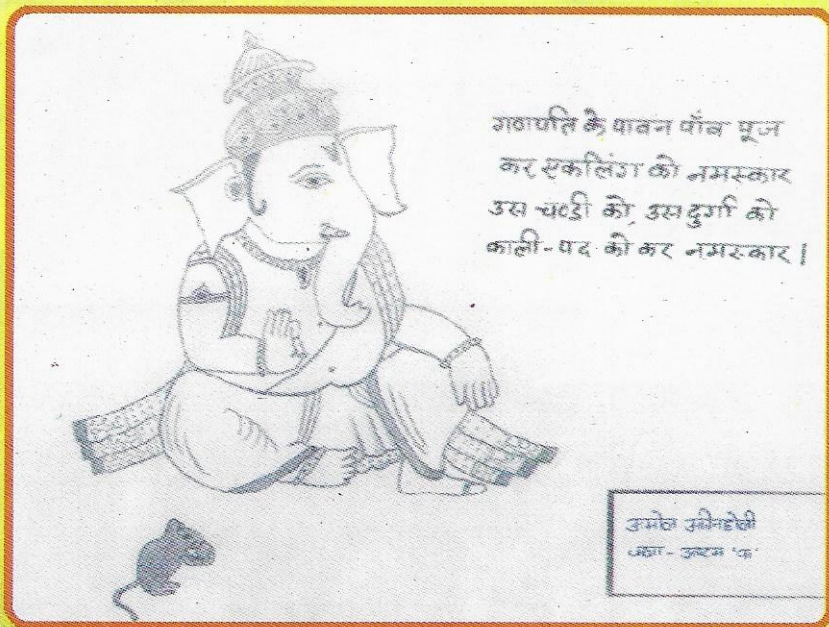 गणपति के पावन पाँव पूज
कर एकलिंग को नमस्कार
उस चण्डी को, उस दुर्गा को
काली-पद को कर नमस्कार।
अमोल
कक्षा - अष्टम 'क'